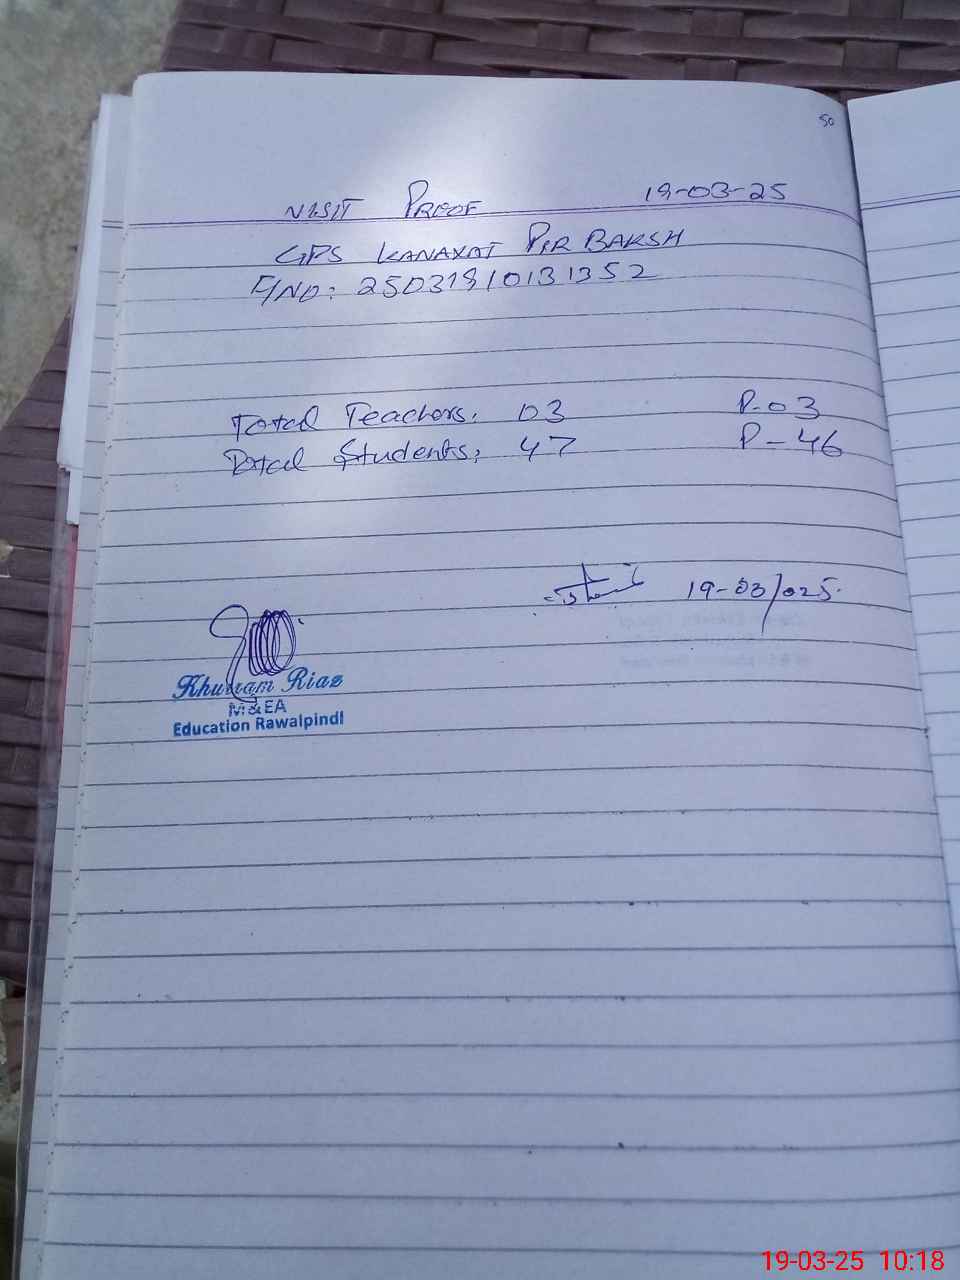 50
VISIT PROOF 19-03-25
GPS KANAYAT PIR BAKSH
F/NO: 25031910131352
Total Teachers: 03 P-03
Total Students: 47 P-46
19-03/025
Khurram Riaz
M&EA
Education Rawalpindi
19-03-25 10:18